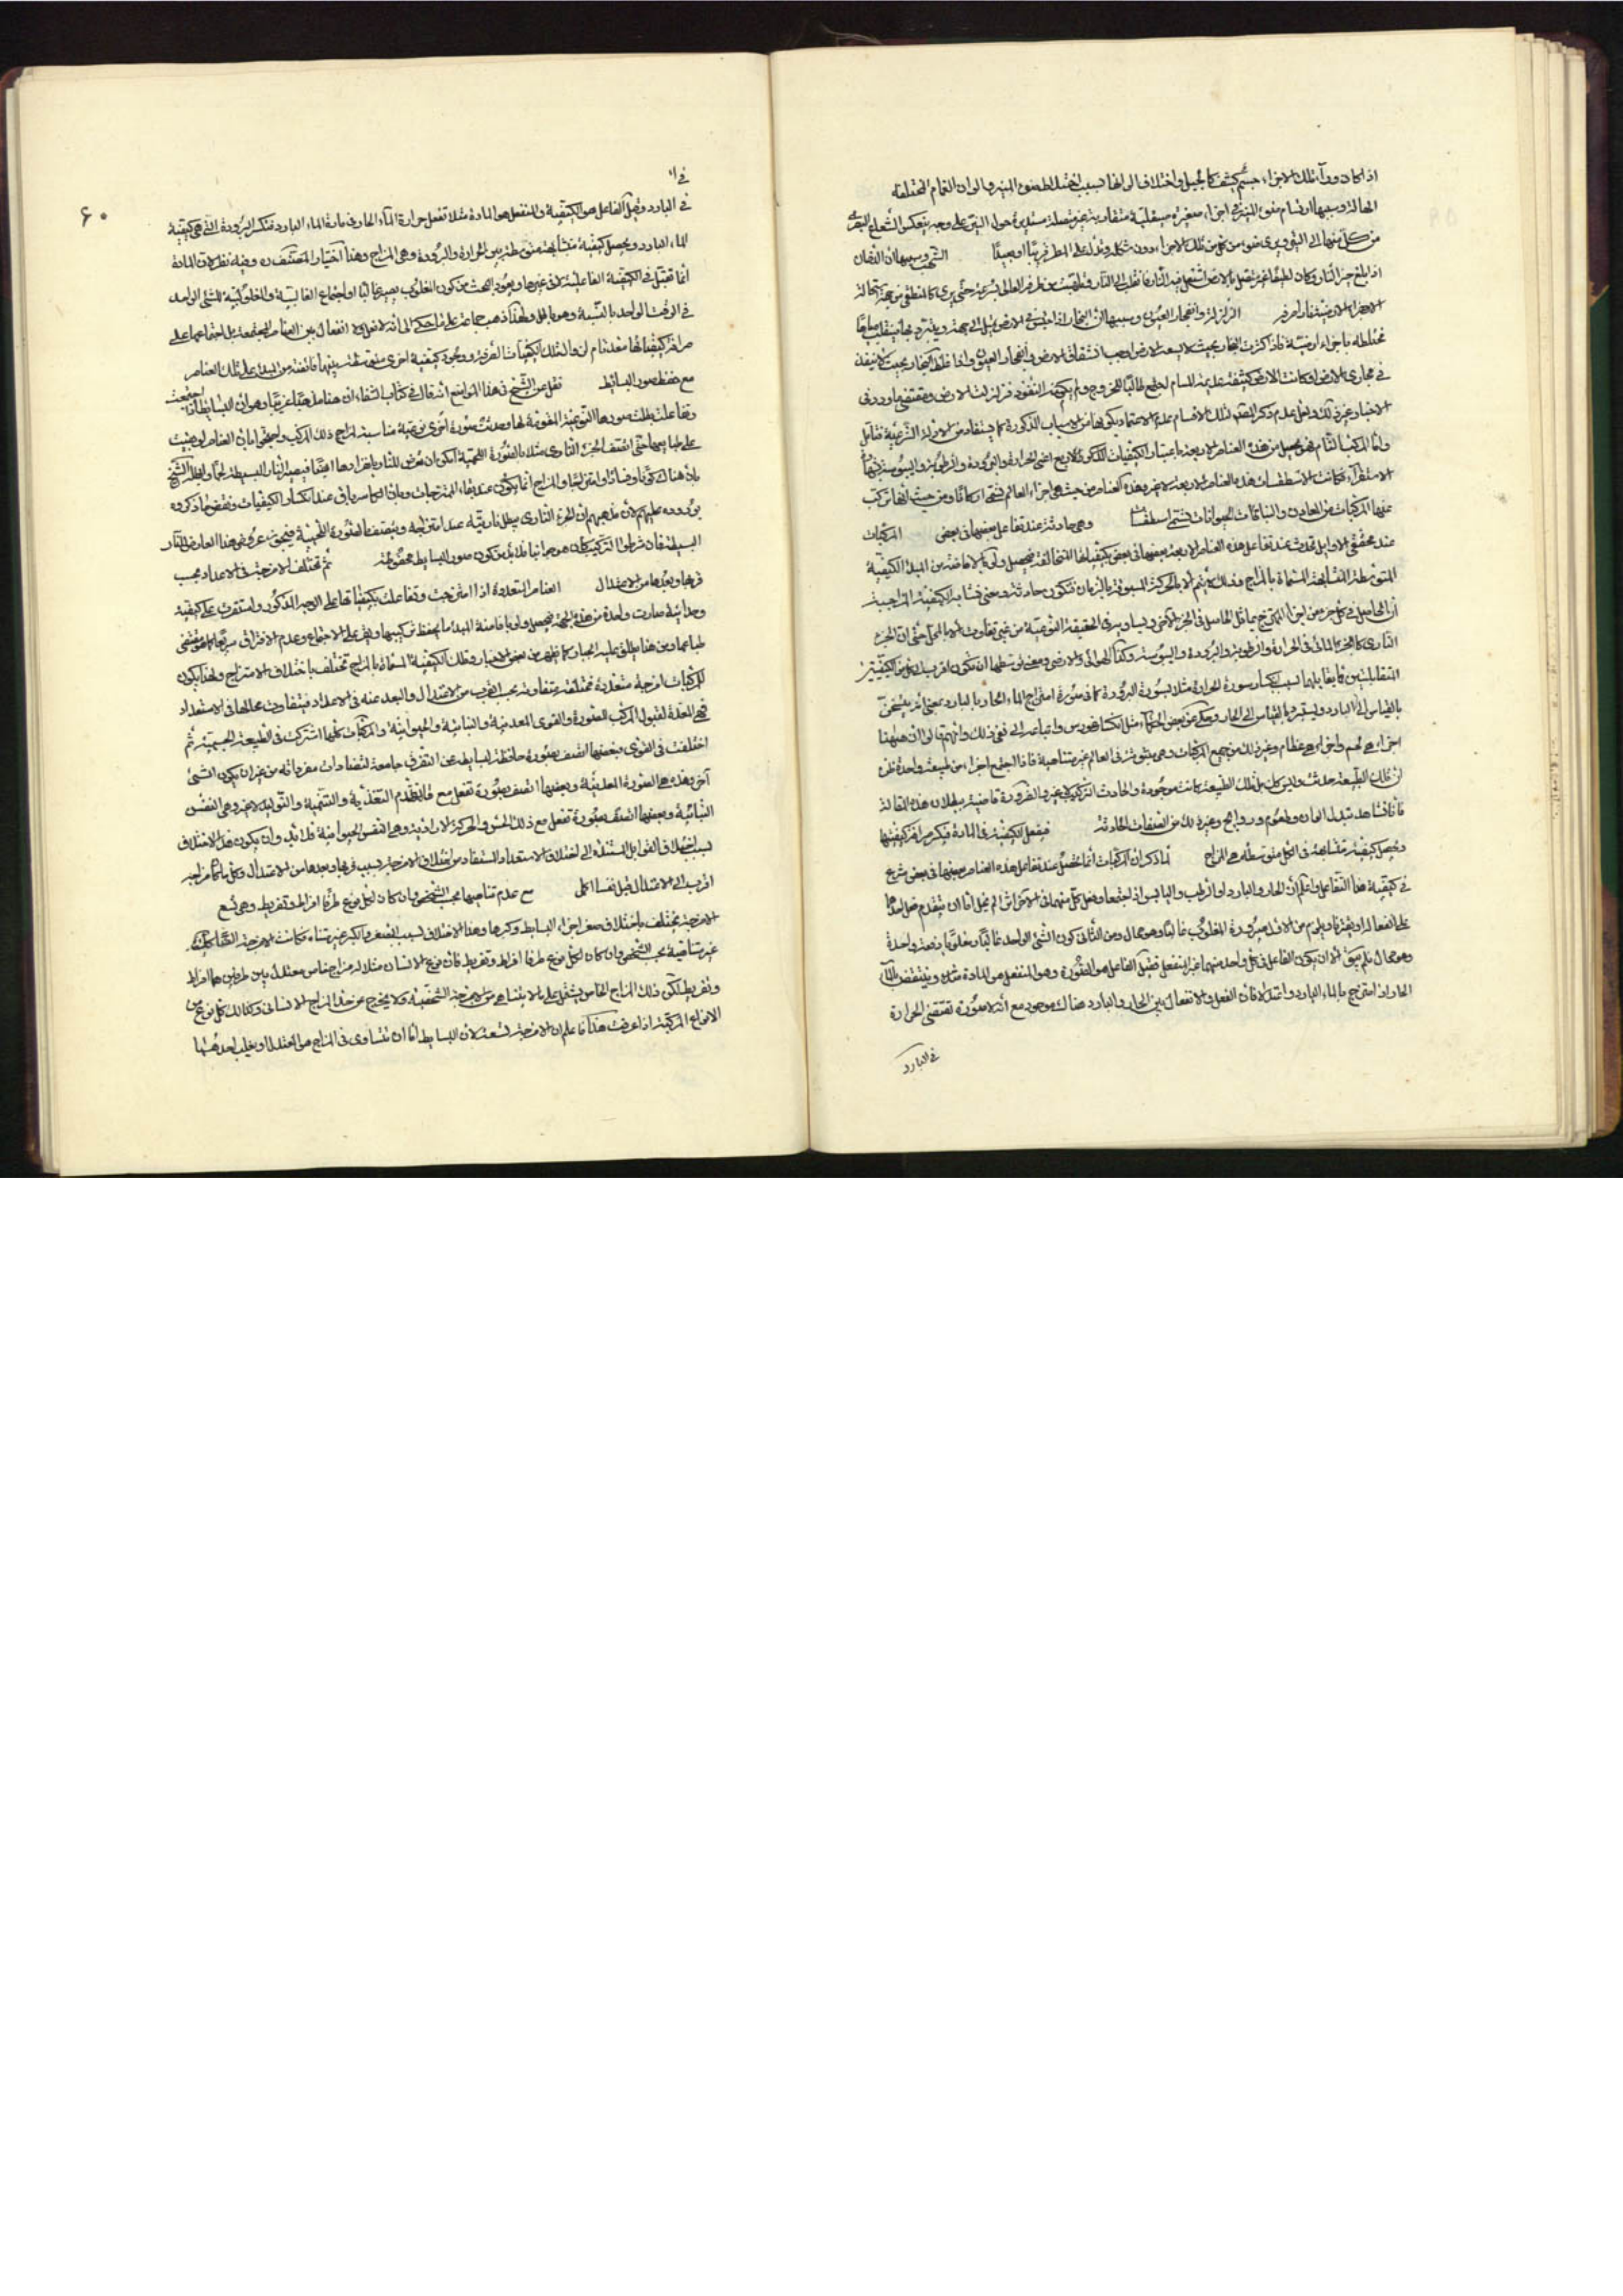 اذا كان وراء تلك الاجزاء جسم كثيف كالجبل واختلاف الوانها بسبب اختلاط ضوء النير والوان الغمام المختلفة
الهالة وسببها ارتسام ضوء النير في اجزاء صغيرة صيقلية متقاربة غير متصلة مستديرة حول النير على وجه ينعكس الشعاع البصرى
من كل منها الى النير ويرى ضوءه من كل من تلك الاجزاء دون شكله ويدل على المطر قريبا او بعيدا الشهب وسببها ان الدخان
اذا بلغ حيز النار وكان لطيفا غير متصل بالارض اشتعل فيه النار فانقلب الى النار ويلتهب من طرفه العالى بسرعة حتى يرى كالمنطفى
الاجزاء الارضية نارا صرفة الزلزلة وانفجار العيون وسببها ان البخار اذا احتبس في الارض يميل الى جهة ويتبرد بها فينقلب مياها
مختلطة باجزاء ارضية فاذا كثرت البخار بحيث لا يسعه الارض اوجب انشقاق الارض وانفجار العيون واذا غلظ البخار بحيث لا ينفذ
في مجارى الارض او كانت الارض كثيفة عديمة المسام اجتمع طالبا للخروج ولم يمكنه النفوذ فزلزلت الارض
الاخبار وغير ذلك ولعل عدم ذكر المصنف لتلك الاقسام عدم الاعتماد بكونها من الاسباب المذكورة كما يستفاد من الادلة الشرعية فتأمل
واما المركب التام فهو يحصل من هذه العناصر الاربعة باعتبار الكيفيات المذكورة الاربع اعنى الحرارة والبرودة والرطوبة واليبوسة
الاستقراء فكانت الاسطقسات هذه العناصر الاربعة لا غير وهذه العناصر من حيث هى اجزاء العالم تسمى اركانا ومن حيث انها تركب
عنها المركبات من المعادن والنباتات والحيوانات تسمى اسطقسات وهى حادثة عند تفاعل بعضها في بعض المركبات
عند محققى الاوايل تحدث عند تفاعل هذه العناصر الاربعة بعضها في بعض بكيفياتها المتخالفة فيحصل الكيفية
المتوسطة المتشابهة المسماة بالمزاج وذلك لا يتم الا بالحركة المسبوقة بالزمان فتكون حادثة ومعنى تشابه الكيفية المزاجية
ان الحاصل في كل جزء من اجزاء الممتزج يماثل الحاصل في الجزء الاخر ويساويه في الحقيقة النوعية من غير تفاوت الا بالمحل حتى ان الجزء
النارى كالجزء المائى في الحرارة والرطوبة والبرودة واليبوسة وكذا الهوائى والارضى ومعنى توسطها ان تكون اقرب الى كل من الكيفيتين
المتقابلتين بسبب انكسار سورة الحرارة مثلا بسورة البرودة كما في صورة امتزاج الماء الحار بالبارد بمعنى انه يتسخن
بالقياس الى البارد ويستبرد بالقياس الى الحار وحكى عن بعض الحكماء مثل انكساغورس واتباعه الى نفى ذلك وانهم قالوا ان هيهنا
اجزاء هى لحم واجزاء هى عظام وغير ذلك من جميع المركبات وهى مبثوثة في العالم غير متناهية فاذا اجتمع اجزاء من طبيعة واحدة ظن
ان تلك الطبيعة حدثت وليس كذلك بل تلك الطبيعة كانت موجودة والحادث التركيب لا غير والضرورة قاضية ببطلان هذه المقالة
فانا نشاهد تبدل الوان وطعوم وروايح وغير ذلك من الصفات الحادثة فيفعل الكيفية في المادة فيكسر صرافة كيفيتها
وتحصل كيفية متشابهة في الكل متوسطة هى المزاج لما ذكر ان المركبات انما تحصل عند تفاعل هذه العناصر بعضها في بعض شرع
في كيفية هذا التفاعل واعلم ان الحار والبارد او الرطب واليابس اذا اجتمعا وفعل كل منهما في الاخر اثرا لم يخل اما ان يتقدم فعل احدهما
على انفعاله او يقترنا ويلزم من الاول صيرورة المغلوب غالبا وهو محال ومن الثانى كون الشئ الواحد غالبا ومغلوبا دفعة واحدة
وهو محال فلم يبق الا ان يكون الفاعل في كل واحد منهما غير المنفعل فقيل الفاعل هو الصورة وهو المنفعل هو المادة مثلا وينتقض بالماء
الحار اذا امتزج بالماء البارد واعتدلا فان الفعل والانفعال بين الحار والبارد هناك موجود مع انه لا صورة تقتضى الحرارة
في البارد
٦٠
في البارد وقيل الفاعل هو الكيفية والمنفعل هو المادة مثلا تفعل حرارة الماء الحار في مادة الماء البارد فتكسر البرودة التى هى كيفية
الماء البارد ويحصل كيفية متشابهة متوسطة بين الحرارة والبرودة وهى المزاج وهذا اختيار المصنف ره وفيه نظر لان المادة
انما تنفعل في الكيفية الفاعلية لا في غيرها ويعود البحث من كون المغلوب يصير غالبا او اجتماع الغالبية والمغلوبية للشئ الواحد
في الوقت الواحد بالنسبة وهو باطل ولهذا ذهب جماعة على ما حكى الى انه لا فعل ولا انفعال بين العناصر المجتمعة بل اجتماعها على
صرافة كيفياتها معد تام لزوال تلك الكيفيات الصرفة ووجود كيفية اخرى متوسطة بينها فائضة من المبدء على تلك العناصر
مع حفظ صور البسائط نقل عن الشيخ في هذا المواضع انه قال في كتاب الشفاء ان هنا مذهبا غريبا وهو ان البسائط اذا اجتمعت
وتفاعلت بطلت صورها النوعية المقومة لها وحدثت صورة اخرى نوعية مناسبة لمزاج ذلك المركب واحتجوا بان العناصر لو بقيت
على طبايعها حتى اتصف الجزء النارى مثلا بالصورة اللحمية امكن ان تعرض للنار بانفرادها ايضا فيصير النار البسيطة لحما وابطله الشيخ
بان هناك كونا وفسادا وامتزاجا والمزاج انما يكون عند بقاء الممتزجات وبان الكاسر باق عند انكسار الكيفيات ونقض ما ذكروه
بوروده عليهم لان مذهبهم ان الجزء النارى يبطل ناريته عند امتزاجه ويتصف بالصورة اللحمية فيجوز عروض هذا العارض للنار
البسيطة فان شرطوا التركيب كان هو جوابنا فلا بد من كون صور البسايط محفوظة ثم تختلف الامزجة في الاعداد بحسب
قربها وبعدها من الاعتدال العناصر المتعددة اذا امتزجت وتفاعلت بكيفياتها على الوجه المذكور واستقرت على كيفية
وحدانية صارت واحدة من هذه الجهة فيحصل ولو بافاضة المبدء ما يحفظ تركيبها ويقرها على الاجتماع وعدم الافتراق سريعا
وتلك الكيفية المسماة بالمزاج تختلف باختلاف الامتزاج ولهذا يكون
للمركبات امزجة متعددة مختلفة متفاوتة بحسب القرب من الاعتدال والبعد عنه في الاعداد فيتفاوت محالها في الاستعداد
فهى المعدة لقبول المركب الصورة والقوى المعدنية والنباتية والحيوانية والمركبات كلها اشتركت في الطبيعة الجسمية ثم
اختلفت في القوى فبعضها اتصف بصورة حافظة لبسايطه عن التفرق جامعة لمتضادات مفرداته من غير ان يكون لشئ
آخر وهذه هى الصورة المعدنية وبعضها اتصف بصورة تفعل مع ما تقدم التغذية والتنمية والتوليد لا غير وهى النفس
النباتية وبعضها اتصف بصورة تفعل مع ذلك الحس والحركة الارادية وهى النفس الحيوانية فلا بد وان يكون هذا الاختلاف
بسبب اختلاف القوابل المستندة الى اختلاف الاستعداد المستفاد من اختلاف الامزجة بسبب قربها وبعدها من الاعتدال وكل ما كان مزاجه
اقرب الى الاعتدال قبل نفسا اكمل مع عدم تناهيها بحسب الشخص وان كان لكل نوع طرفا افراط وتفريط وهى تسع
الامزجة تختلف باختلاف صغر اجزاء البسايط وكبرها وهذا الاختلاف بسبب الصغر والكبر غير متناه فكانت الامزجة كذلك
غير متناهية بحسب الشخص وان كان لكل نوع طرفا افراط وتفريط فان نوع الانسان مثلا له مزاج خاص معتدل بين طرفين هما افراط
وتفريط لكن ذلك المزاج الخاص يشتمل على ما لا يتناهى من الامزجة الشخصية ولا يخرج عن حد المزاج الانسانى وكذلك كل نوع من
الانواع المركبة اذا عرفت هذا فاعلم ان الامزجة تسعة لان البسايط اما ان تتساوى في المزاج هو المعتدل او يغلب احدهما